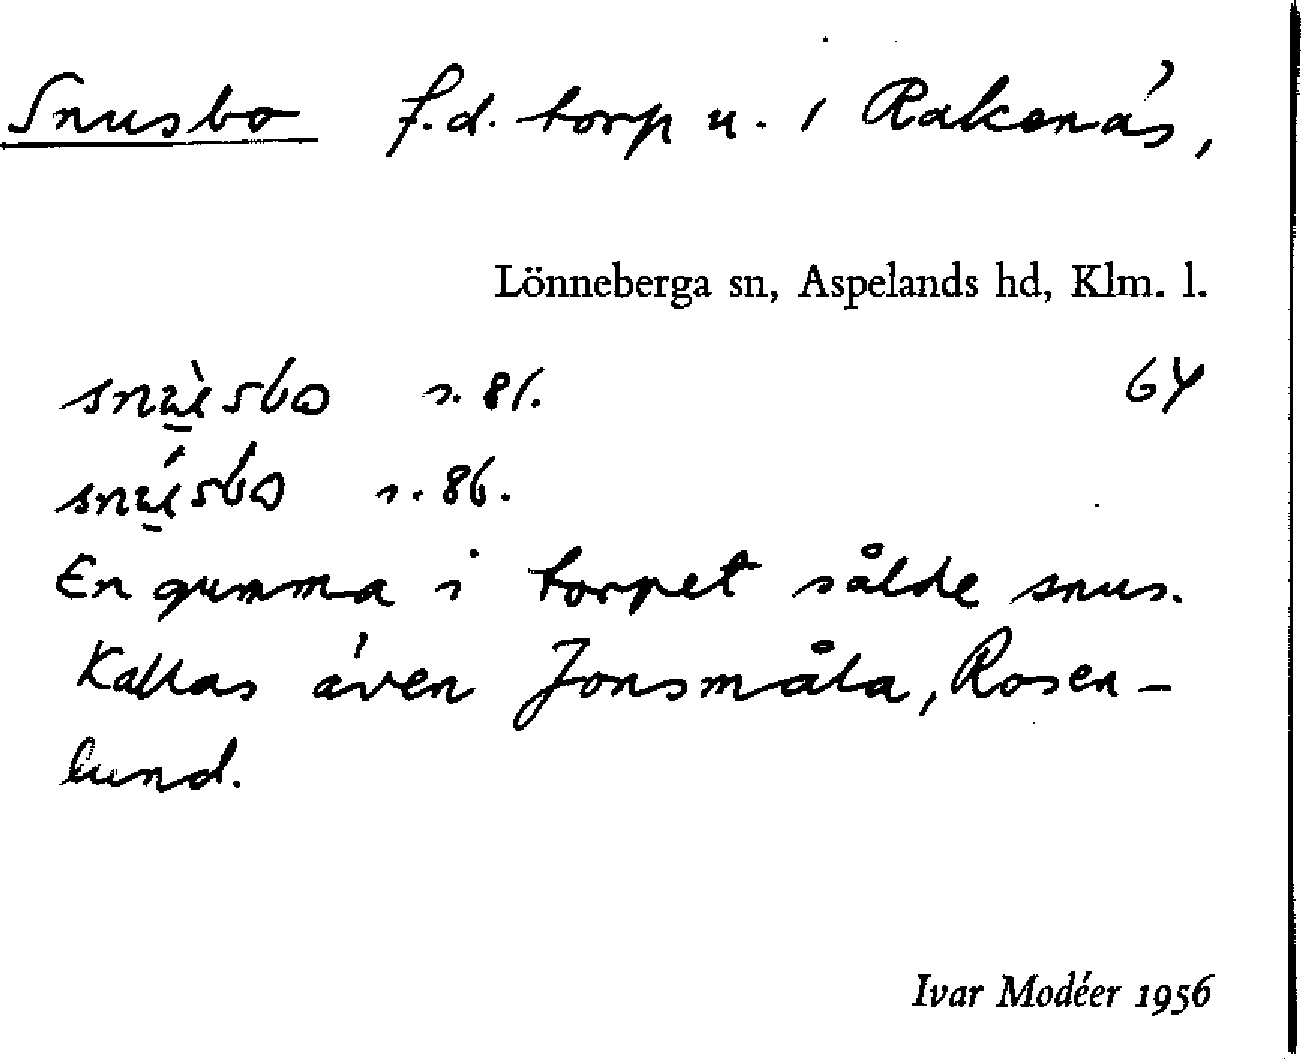 Snusbo f.d. torp u. 1 Rakenäs,
Lönneberga sn, Aspelands hd, Klm. l.
s. 81. 64
s. 86.
En gumma i torpet sålde snus.
Kallas även Jonsmåla, Rosen-
lund.
Ivar Modéer 1956